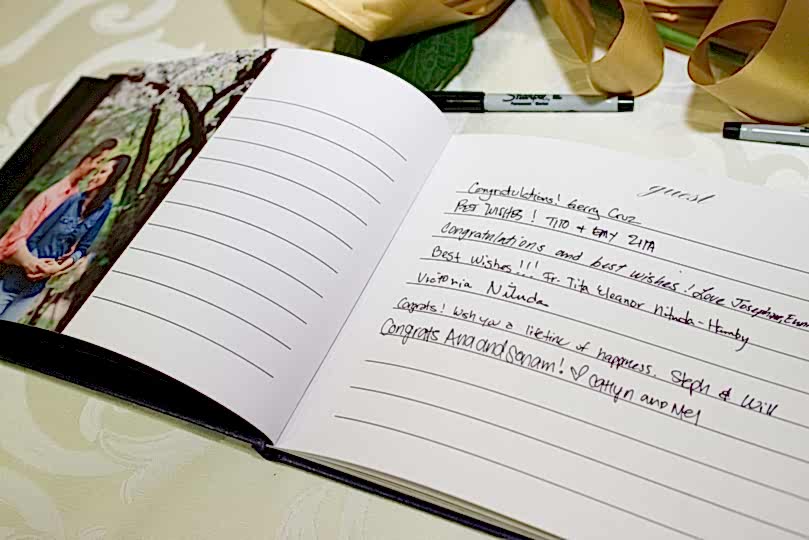 Sharpie
guest
Congratulations! Gerry Cruz
BEST WISHES! TITO + EMY ZITA
Congratulations and best wishes! Love Josephine,
Best Wishes!!! Fr. Tita Eleanor Nituda-Hamby
Victoria Nituda
Congrats! Wish you a lifetime of happiness. Steph & Will
Congrats Ana and Sonam! ♡ Catlyn and Mel